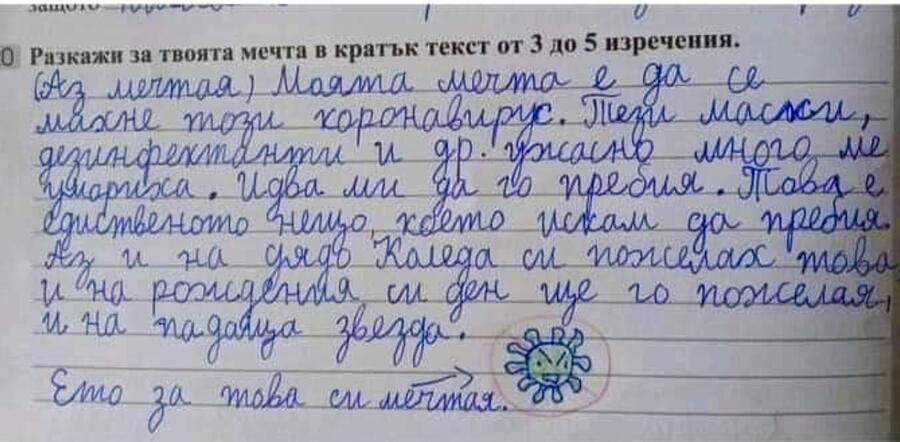 защото
0 Разкажи за твоята мечта в кратък текст от 3 до 5 изречения.
(Аз мечтая) Моята мечта е да се
махне този коронавирус. Тези маски,
дезинфектанти и др. ужасно много ме
умориха. Идва ми да го пребия. Това е
едиственото нещо, което искам да пребия.
Аз и на дядо Каледа си пожелах това
и на рождения си ден ще го пожелая,
и на падаяща звезда.
Ето за това си мечтая.